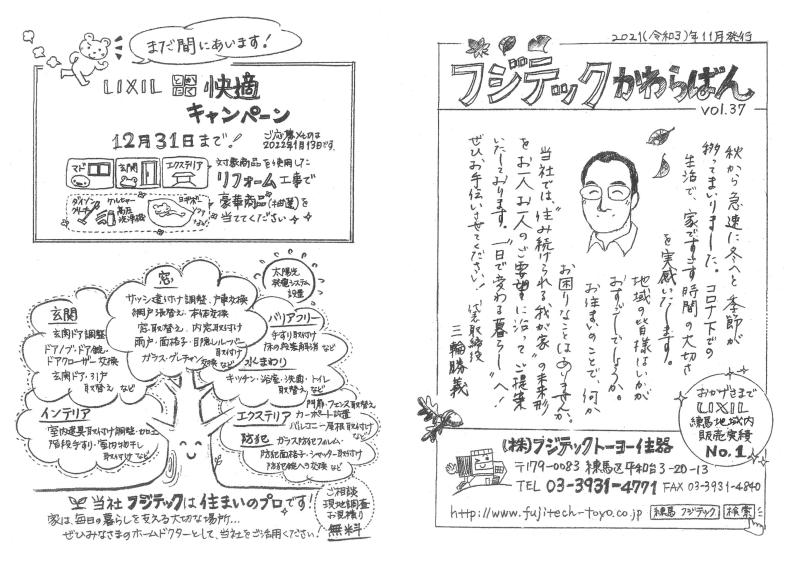 まだ間にあいます!
LIXIL とにかく 快適
キャンペーン
12月31日まで!
ご応募〆切は
2022年1月13日です。
マド
玄関
エクステリア
対象商品を使用した
リフォーム工事で
豪華商品(抽選)を
当ててください
ダイソン
クリーナー
ケルヒャー
高圧
洗浄機
ヨギボー
ソファ
など!
太陽光
発電システム
設置
窓
サッシ建て付け調整・戸車交換
網戸張替え・本体交換
窓取替え・内窓取付け
雨戸・面格子・目隠しルーバー
取付け
ガラス・グレチャン
交換 など
玄関
玄関ドア調整
ドアノブ・ドア錠・
ドアクローザー交換
玄関ドア・引戸
取替え など
バリアフリー
手すり取付け
床の段差解消 など
水まわり
キッチン・浴室・洗面・トイレ
取替え など
インテリア
室内建具取付け調整・加工
階段手すり・室内物干し
取付け など
エクステリア
門扉・フェンス取替え
カーポート設置
バルコニー屋根取付け
など
防犯
ガラス防犯フィルム・
防犯面格子・シャッター取付け
防犯錠へ交換 など
当社 フジテックは住まいのプロです!
家は、毎日の暮らしを支える大切な場所…
ぜひみなさまのホームドクターとして、当社をご活用ください!
ご相談
現地調査
お見積り
無料
2021(令和3)年11月発行
フジテックかわらばん
vol.37
秋から急速に冬へと季節が
移ってまいりました。コロナ下での
生活で、家ですごす時間の大切さ
を実感いたします。
地域の皆様はいかが
おすごしでしょうか。
お住まいのことで、何か
お困りなことはありませんか。
当社では、“住み続けられる我が家”の未来形
をお一人お一人のご要望に沿ってご提案
いたしております。“一日で変わる暮らし”へ!
ぜひお手伝いさせてください!
代表取締役
三輪勝義
おかげさまで
LIXIL
練馬地域内
販売実績
No.1
(株)フジテックトーヨー住器
〒179-0083 練馬区平和台3-20-13
TEL 03-3931-4771 FAX 03-3931-4840
http://www.fujitech-toyo.co.jp 練馬 フジテック 検索